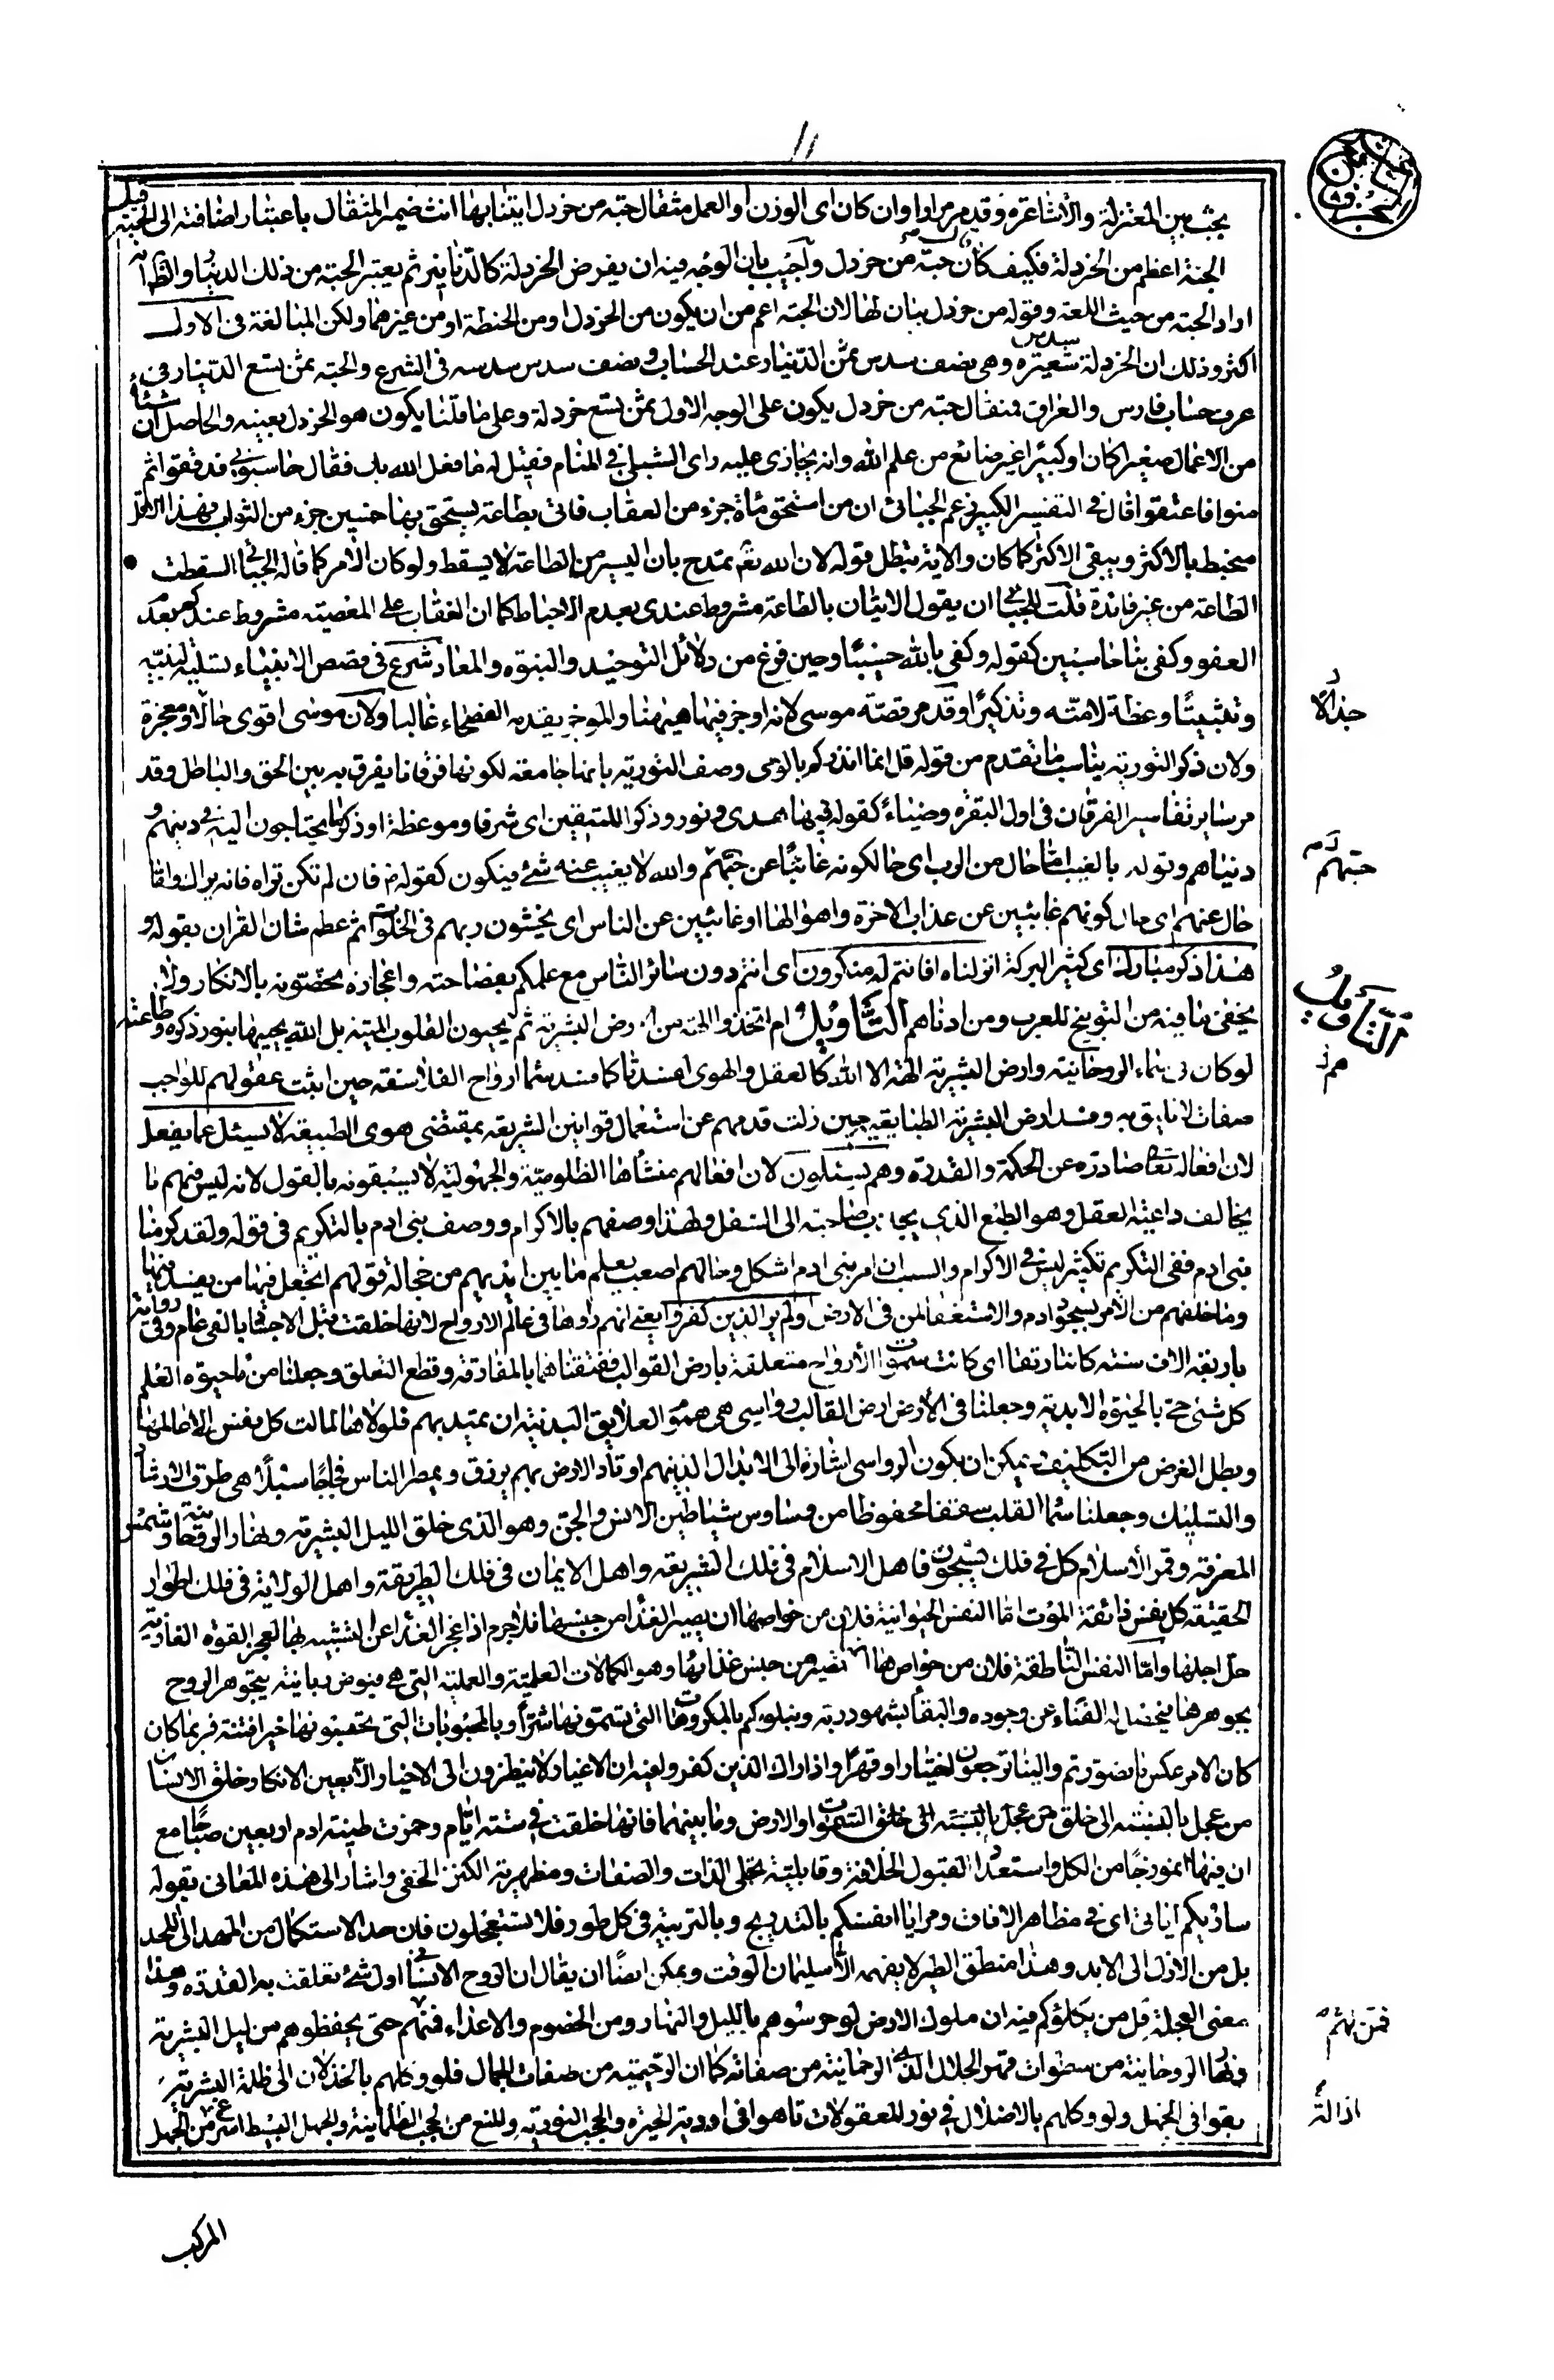 ١١
بحث بين المعتزلة والاشاعرة وقد مر مرارا وان كان اى الوزن او العمل مثقال حبة من خردل اتينا بها انث ضمير المثقال باعتبار اضافته الى الحبة قيل
الحبة اعظم من الخردلة فكيف قال حبة من خردل واجيب بان الوجه فيه ان يفرض الخردلة كالدنانير ثم يعتبر الحبة من ذلك الدينار والظاهر انه
اراد الحبة من حيث اللغة وقوله من خردل بيان لها لان الحبة اعم من ان يكون من الخردل او من الحنطة او من غيرهما ولكن المبالغة فى الاول
اكثر وذلك ان الخردلة سدس شعيرة وهى نصف سدس ثمن الدينار عند الحساب ونصف سدس سدسه فى الشرع والحبة ثمن تسع الدينار فى
عرف حساب فارس والعراق فمثقال حبة من خردل يكون على الوجه الاول ثمن تسع خردلة وعلى ما قلنا يكون هو الخردل بعينه والحاصل ان شيئا
من الاعمال صغيرا كان او كبيرا غير ضائع من علم الله وانه يجازى عليه راى الشبلى فى المنام فقيل له ما فعل الله بك فقال حاسبونى فدققوا ثم
منوا فاعتقوا قال فى التفسير الكبير زعم الجبائى ان من استحق مائة جزء من العقاب فاتى بطاعة يستحق بها خمسين جزء من الثواب فهذا الاقل
منحبط بالاكثر ويبقى الاكثر كما كان والاية تبطل قوله لان الله تعالى تمدح بان اليسير من الطاعة لا يسقط ولو كان الامر كما قاله الجبائى لسقطت
الطاعة من غير فائدة قلت للجبائى ان يقول الاتيان بالطاعة مشروط عندى بعدم الاحباط كما ان العقاب على المعصية مشروط عندكم بعدم
العفو وكفى بنا حاسبين كقوله وكفى بالله حسيبا وحين فرغ من دلائل التوحيد والنبوة والمعاد شرع فى قصص الانبياء تسلية لنبيه
وتثبيتا وعظة لامته وتذكيرا وقدم قصة موسى لانه اوجز فيها هيهنا والموجز يقدمه الفصحاء غالبا ولان موسى اقوى حالا ومعجزة
ولان ذكر التورية يناسب ما تقدم من قوله قل انما انذركم بالوحى وصف التورية بانها جامعة لكونها فرقانا يفرق به بين الحق والباطل وقد
مر ساير تفاسير الفرقان فى اول البقرة وضياء كقوله فيها هدى ونور وذكرا للمتقين اى شرفا وموعظة او ذكر ما يحتاجون اليه فى دينهم و
دنياهم وقوله بالغيب اما حال من الرب اى حالكونه غائبا عن حسهم والله لا يغيب عنه شئ فيكون كقوله فان لم تكن تراه فانه يراك واما
حال عنهم اى حال كونهم غائبين عن عذاب الاخرة واهوالها او غائبين عن الناس اى يخشون ربهم فى الخلوات ثم عظم شان القران بقوله و
هذا ذكر مبارك اى كثير البركة انزلناه افانتم له منكرون اى انتم دون سائر الناس مع علمكم بفصاحته واعجازه تخصونه بالانكار ولا
يخفى ما فيه من التوبيخ للعرب ومن اداناهم التأويل ام اتخذوا الهة من ارض البشرية ثم يحيون القلوب الميتة بل الله يحييها بنور ذكره وطاعته
لو كان فى سماء الروحانية وارض البشرية الهة الا الله كالعقل والهوى لفسدتا كما فسد سماء ارواح الفلاسفة حين اثبت عقولهم للواجب
صفات لا تليق به وفسد ارض البشرية الطبايعية حين زلت قدمهم عن استعمال قوانين الشريعة بمقتضى هوى الطبيعة لا يسئل عما يفعل
لان افعاله تعالى صادرة عن الحكمة والقدرة وهم يسئلون لان افعالهم منشاها الظلومية والجهولية لا يسبقونه بالقول لانه ليس فيهم ما
يخالف داعية العقل وهو الطبع الذى يجذب صاحبه الى السفل ولهذا وصفهم بالاكرام ووصف بنى ادم بالتكريم فى قوله ولقد كرمنا
بنى ادم ففى التكريم تكثير ليس فى الاكرام والسبب ان امر بنى ادم اشكل وحالهم اصعب يعلم ما بين ايديهم من خجالة قولهم اتجعل فيها من يفسد فيها
وما خلفهم من الامر بسجود ادم والاستغفار لمن فى الارض اولم ير الذين كفروا يعنى انهم راوها فى عالم الارواح لانها خلقت قبل الاجساد بالفى عام وفى رواية
باربعة الاف سنة كانتا رتقا اى كانت سموات الارواح متعلقة بارض القوالب ففتقناهما بالمفارقة وقطع التعلق وجعلنا من ماء حيوة العلم
كل شئ حى بالحيوة الابدية وجعلنا فى الارض ارض القالب رواسى هى هموم العلايق البدنية ان تميد بهم فلولاها لمالت كل نفس الى عالمها
وبطل الغرض من التكليف ويمكن ان يكون الرواسى اشارة الى الابدال الذينهم اوتاد الارض بهم يرزق ويمطر الناس فجاجا سبلا هى طرق الارشاد
والتسليك وجعلنا سماء القلب سقفا محفوظا من وساوس شياطين الانس والجن وهو الذى خلق الليل البشرية ونهار الروحانية وشمس
المعرفة وقمر الاسلام كل فى فلك يسبحون فاهل الاسلام فى فلك الشريعة واهل الايمان فى فلك الطريقة واهل الولاية فى فلك اطوار
الحقيقة كل نفس ذائقة الموت اما النفس الحيوانية فلان من خواصها ان يصير الغذا من جنسها فلا جرم اذا عجز الغذا عن التشبيه بها لعجز القوة الغاذية
حل اجلها واما النفس الناطقة فلان من خواصها ان تصير من جنس غذائها وهو الكمالات العلمية والعملية التى هى فيوض ربانية يتجوهر الروح
بجوهرها فيحصل له الفناء عن وجوده والبقا بشهود ربه ونبلوكم بالمكروهات التى تسمونها شرا وبالمحبوبات التى تحسبونها خيرا فتنة فربما كان
كان الامر عكس ما تصورتم والينا ترجعون اختيارا او قهرا واذا راك الذين كفروا يعنى ان الاغيار لا ينظرون الى الاخيار الا بعين الانكار وخلق الانسان
من عجل بالنسبة الى خلق من عجل بالنسبة الى خلق السموات والارض وما بينهما فانها خلقت فى ستة ايام وخمرت طينة ادم اربعين صباحا مع
ان فيها انموزجا من الكل واستعدادا لقبول الخلافة وقابلية تجلى الذات والصفات ومظهرية الكنز الخفى واشار الى هذه المعانى بقوله
ساريكم اياتى اى فى مظاهر الافاق ومرايا انفسكم بالتدريج وبالتربية فى كل طور فلا تستعجلون فان حد الاستكمال من المهد الى اللحد
بل من الازل الى الابد وهذا منطق الطير لا يفهمه الا سليمان الوقت ويمكن ايضا ان يقال ان الروح الانسانى اول شئ تعلقت به القدرة وهذا
معنى العجلة قل من يكلؤكم فيه ان ملوك الارض لو حرسوهم بالليل والنهار ومن الخصوم والاعداء فمنهم حتى يحفظوهم من ليل البشرية
ونهار الروحانية من سطوات قهر الجلال الذى الرحمانية من صفاته كما ان الرحيمية من صفات الجمال فلو وكلهم بالخذلان الى ظلمة البشرية
بقوا فى الجهل ولو وكلهم بالاضلال فى نور المعقولات تاهوا فى اودية الحيرة والحجب النورية والمنع من الحجب الظلمانية والجهل البسيط اسرع من الجهل
المركب
جدالا
حسهم
التأويل
هم
فمن لهم